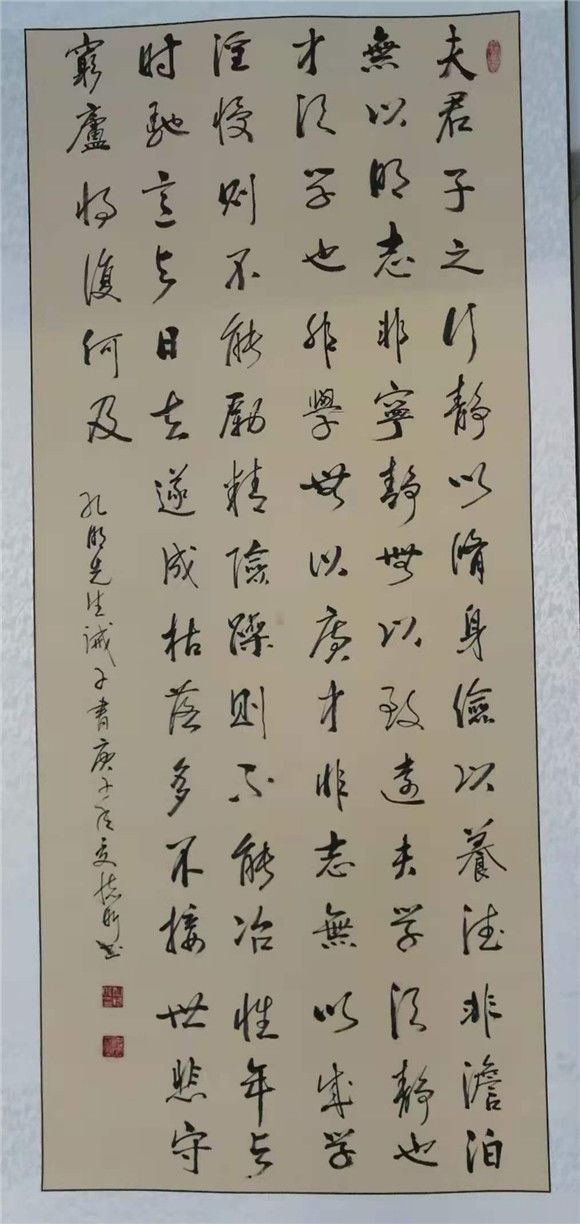 夫君子之行静以脩身儉以養德非澹泊
無以明志非寧静無以致遠夫学须静也
才须学也非學無以廣才非志無以成学
淫慢则不能勵精險躁则不能冶性年与
时馳意与日去遂成枯落多不接世悲守
窮廬将復何及
孔明先生诫子書庚子书